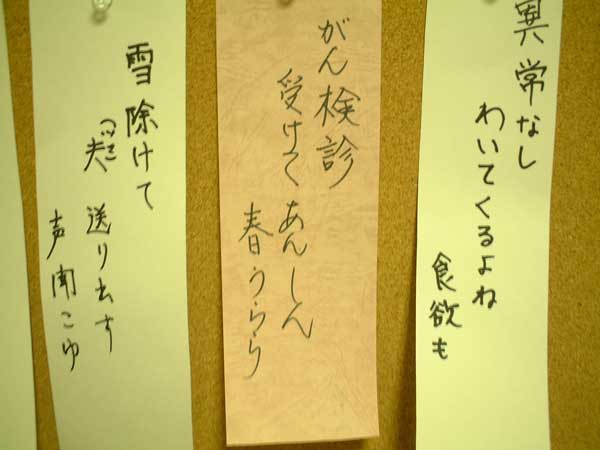 異常なし
わいてくるよね
食欲も
がん検診
受けて あんしん
春うらら
雪除けて
夫 送り出す
声聞こゆ